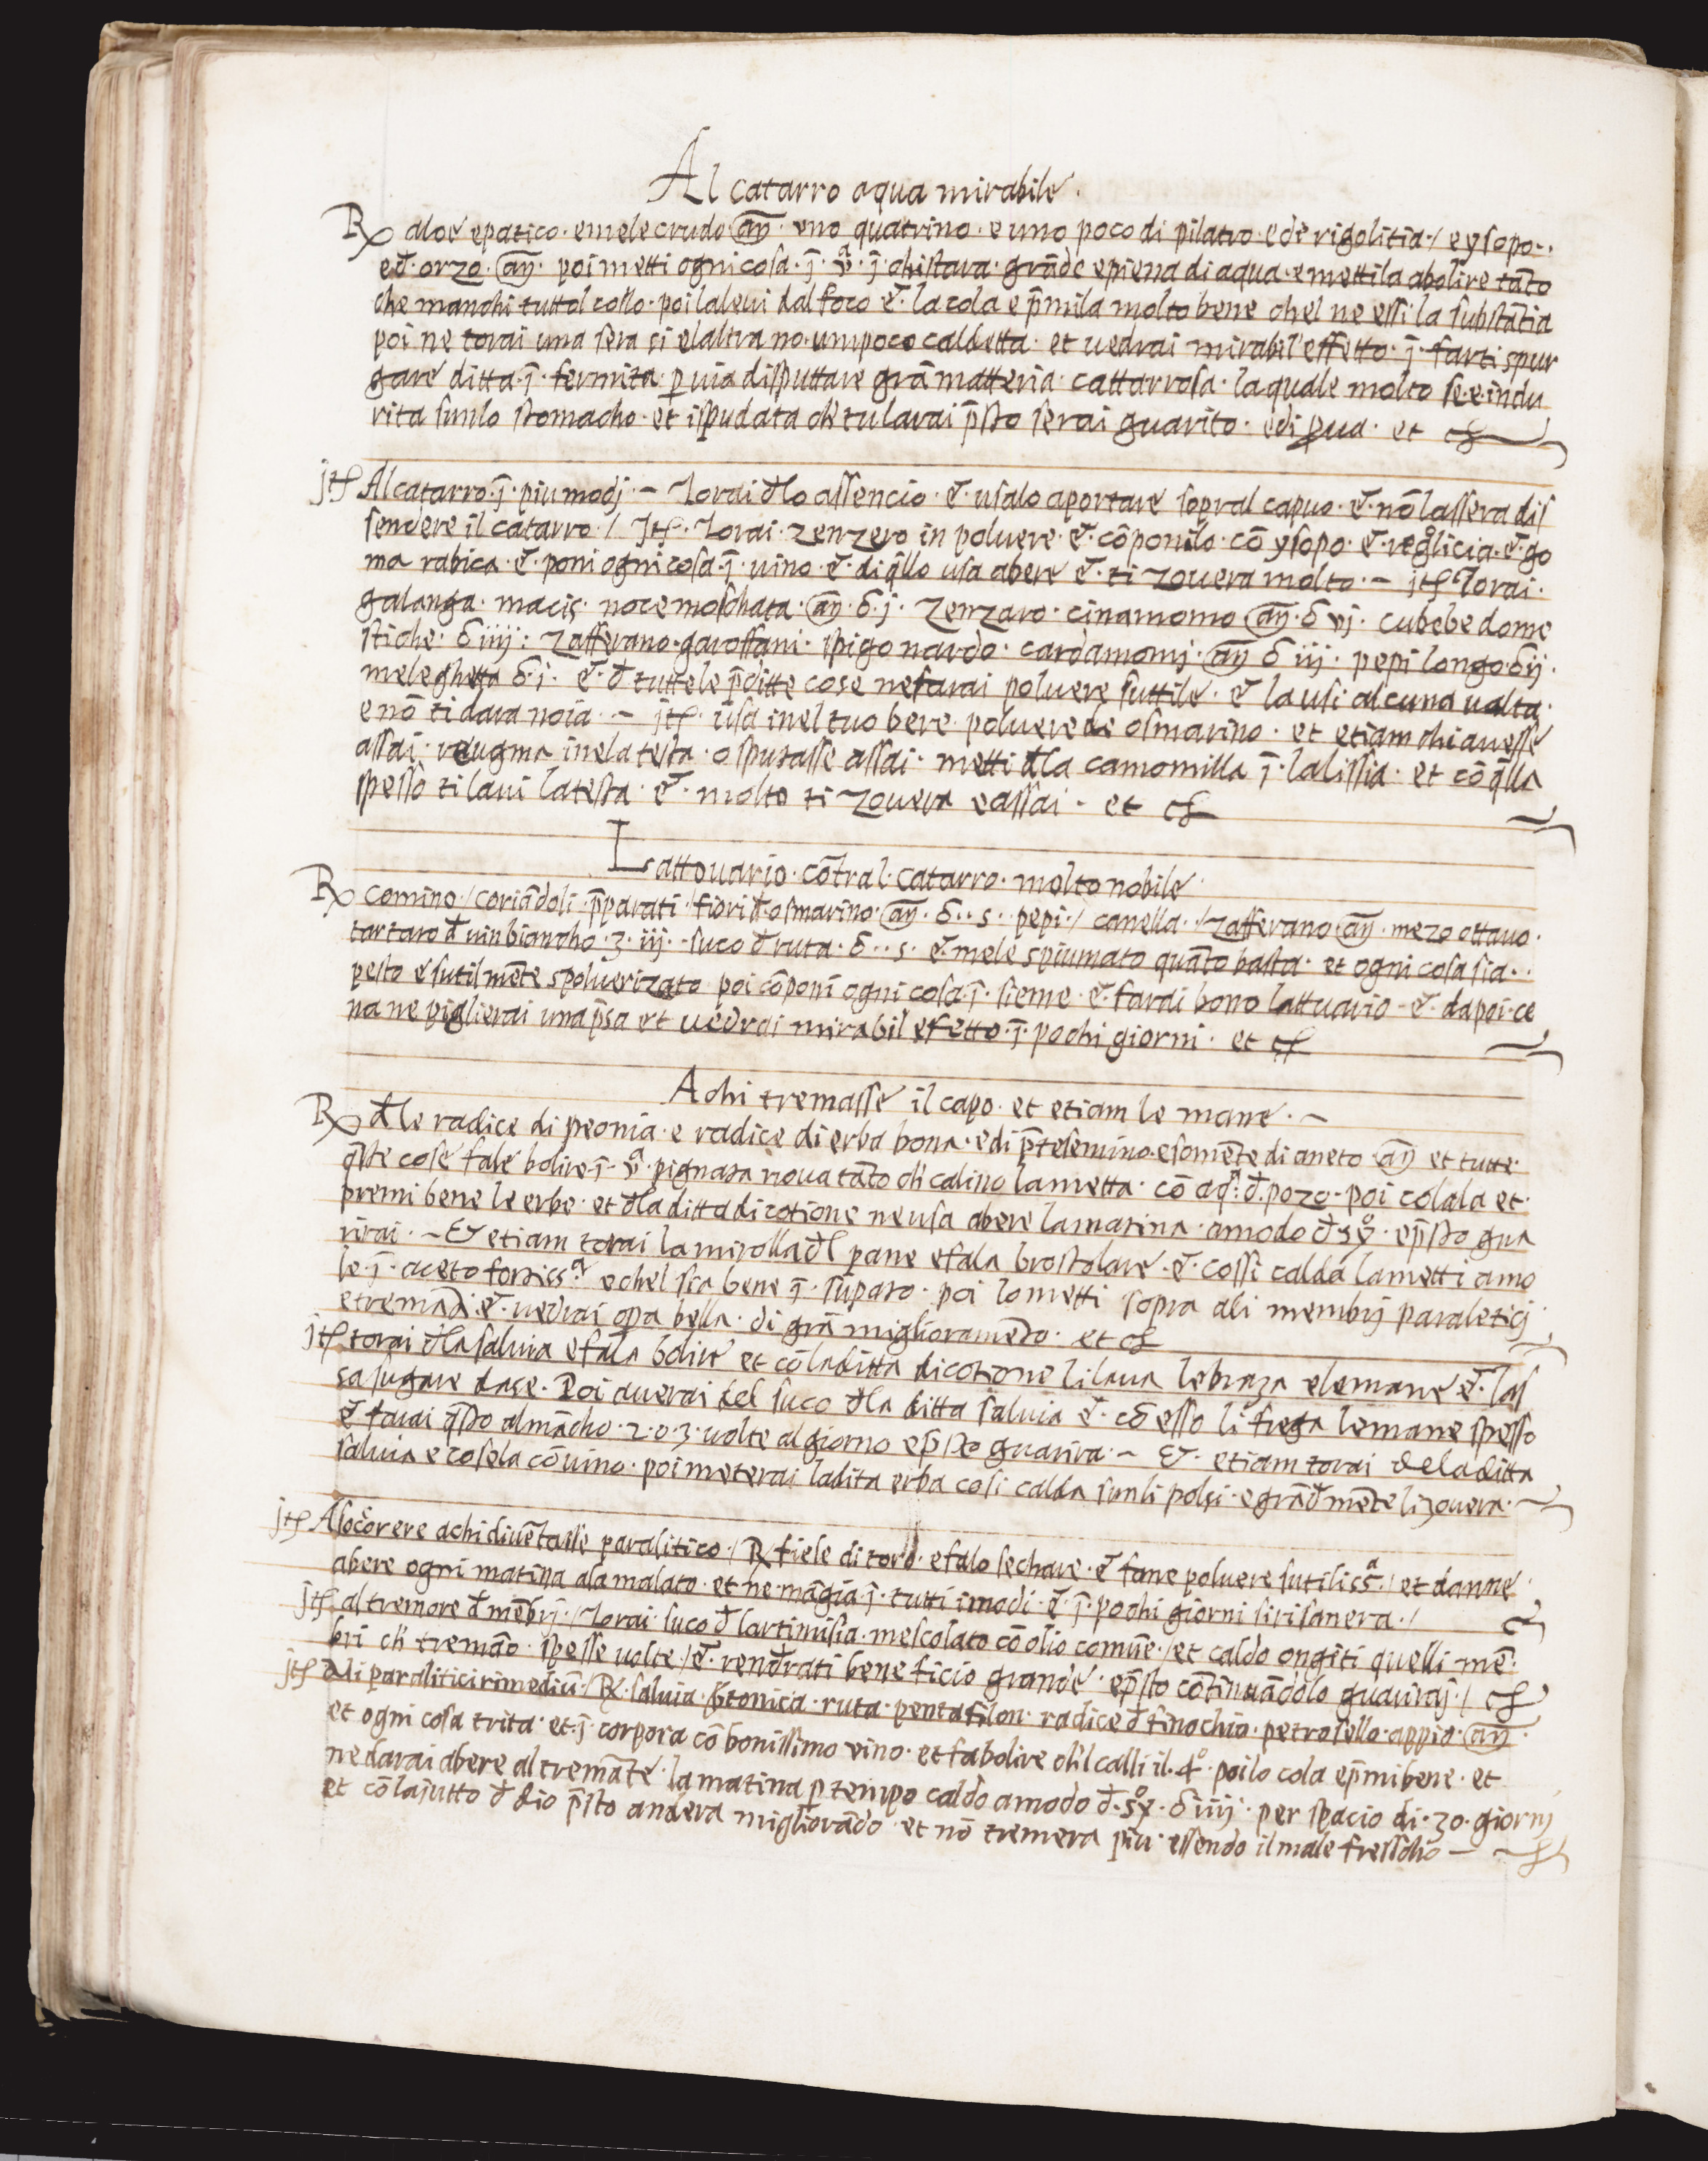 Al catarro aqua mirabile.
℞ aloe epatico · e mele crudo · añ · uno quatrino · e uno poco di pilatro · e de rigolitia · / e ysopo ·
e đ · orzo · añ · poi metti ogni cosa · ī · vª · ī · ghistara · grāde e piena di aqua · e mettila a bolire tāto
che manchi tuttol collo · poi la levi dal foco et · la cola e p̄mila molto bene chel ne essi la substātia
poi ne torai una sera si e laltra no · un poco caldetta · et uedrai mirabil effetto · ī · farti spur
gare ditta · ī · fermita · p uia di sputtare grā matteria · cattarrosa · la quale molto se · e · indu
rita sunlo stomacho · et ispudata ch̄ tu larai p̄sto serai guarito · ed
jtƺ Al catarro · ī · piu modj · – Torai đlo assencio · et · usalo a portare sopral capuo · et · nō lassera dis
sendere il catarro · / Jtƺ · Torai · zenzero in poluere · et · cōponilo · cō ysopo · et · reglicia · et · go
ma rabica · et · poni ogni cosa · ī · uino · et · di q̄llo usa a bere et · ti zouera molto · – jtƺ Torai ·
galanga · macis · noce moschata · añ · δ · j · zenzaro · cinamomo añ · δ vj · cubebe dome
stiche · δ iiij : zafferano · garoffani · spigo nardo · cardamomj · añ δ iij · pepi longo · δ ij ·
meleghetta δ · j · et · đ tutte le p̄ditte cose ne farai poluere suttile · et la usi alcuna uolta ·
e nō ti dara noia · – jtƺ · usa inel tuo bere · poluere de osmarino · et etiam chi auesse
assai · reugma inela testa · o sputasse assai · metti đla camomilla ī · la lissia · et cō q̄lla
spesso ti laui la testa · et · molto ti zouera e assai · et
Lattouario · cōtral · catarro · molto nobile
℞ comino / coriādoli · p̄parati / fiori đ osmarino · añ · δ · s · pepi · / canella · / zafferano añ · mezo ottauo ·
tartaro đ uin biancho · 3 · iij · suco đ ruta · δ · s · et · mele spiumato quāto basta · et ogni cosa sia ·
pesto e sutilmēte spoluerizato poi cōponī ogni cosa · ī · sieme · et · farai bono lattuario · et · da poi · ce
na ne piglierai una p̄sa et uedrai mirabil efetto · ī · pochi giorni · et
A chi tremasse il capo · et etiam le mane · –
℞ đle radice di peonia · e radice di erba bona · e di p̄tesemino · e somēte di aneto añ et tutte
q̄ste cose fale bolire · ī · vª · pignata noua tāto ch̄ cali no la metta · cō aqª · đ · pozo · poi colala et ·
premi bene le erbe · et đla ditta dicotione ne usa a bere la matina · a modo đ syº · e p̄sto gua
rirai · – Et etiam torai la mirolla đl pane e fala brostolare · et · cossi calda la metti a mo
le · ī · aceto fortissº · e chel sia bene ī · supato · poi lo metti sopra ali membrj paraletici
e tremādi et · uedrai opa bella · di grā miglioramēto · et
jtƺ torai đla saluia e fala bolire et cō la ditta dicotione li laua le braza e le mane et · las
sa sugare da se · Poi auerai del suco đla ditta saluia et · cō esso li frega le mane spesso
et farai q̄sto al mācho · 2 · o · 3 · uolte al giorno e p̄sto guarira · – Et · etiam torai dela ditta
saluia e cosela cō uino · poi meterai la dita erba cosi calda sun li polsi · e grādmēte li zouera · –
jtƺ A socōrere a chi diuētasse paralitico · / ℞ fiele di toro · e falo sechare · et fane poluere sutilissª · / et danne
a bere ogni matina ala malato · et ne māgia · ī · tutti i modi · et · ī · pochi giorni si risanera · /
jtƺ · al tremore đ mēbrj · / Torai suco đ lartimisia · mescolato cō olio comūe · / et caldo ongiti quelli mē ·
bri ch̄ tremāo · spesse uolte · / et · rendrati beneficio grande · e p̄sto cōtinuādolo guarirai · /
jtƺ ali paralitici rimediū · / ℞ · saluia · btonica · ruta · pentafilon · radice đ finochio · petrosello · appio · añ ·
et ogni cosa trita · et · ī · corpora cō bonissimo vino · et fa bolire ch̄l calli il · 4º · poi lo cola e p̄mi bene · et
ne darai a bere al tremāte · la matina p tempo caldo a modo đ · syº · δ iiij · per spacio di · 30 · giornj
et cō laiutto đ dio p̄sto andera migliorādo · et nō tremera piu · essendo il male fressicho –